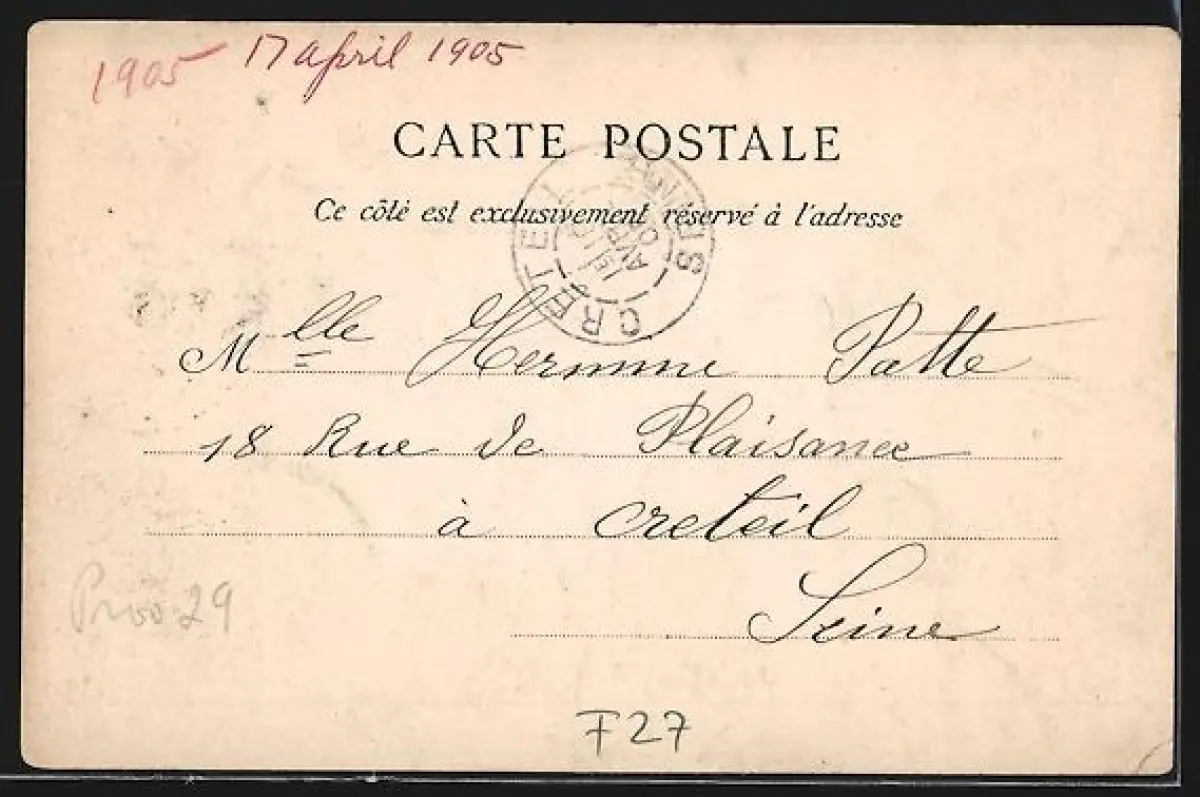 1905 17 april 1905
CARTE POSTALE
Ce côté est exclusivement réservé à l'adresse
CRETEIL
SEINE
Mlle Hermine Patte
18 Rue de Plaisance
à creteil
Seine
29
F27